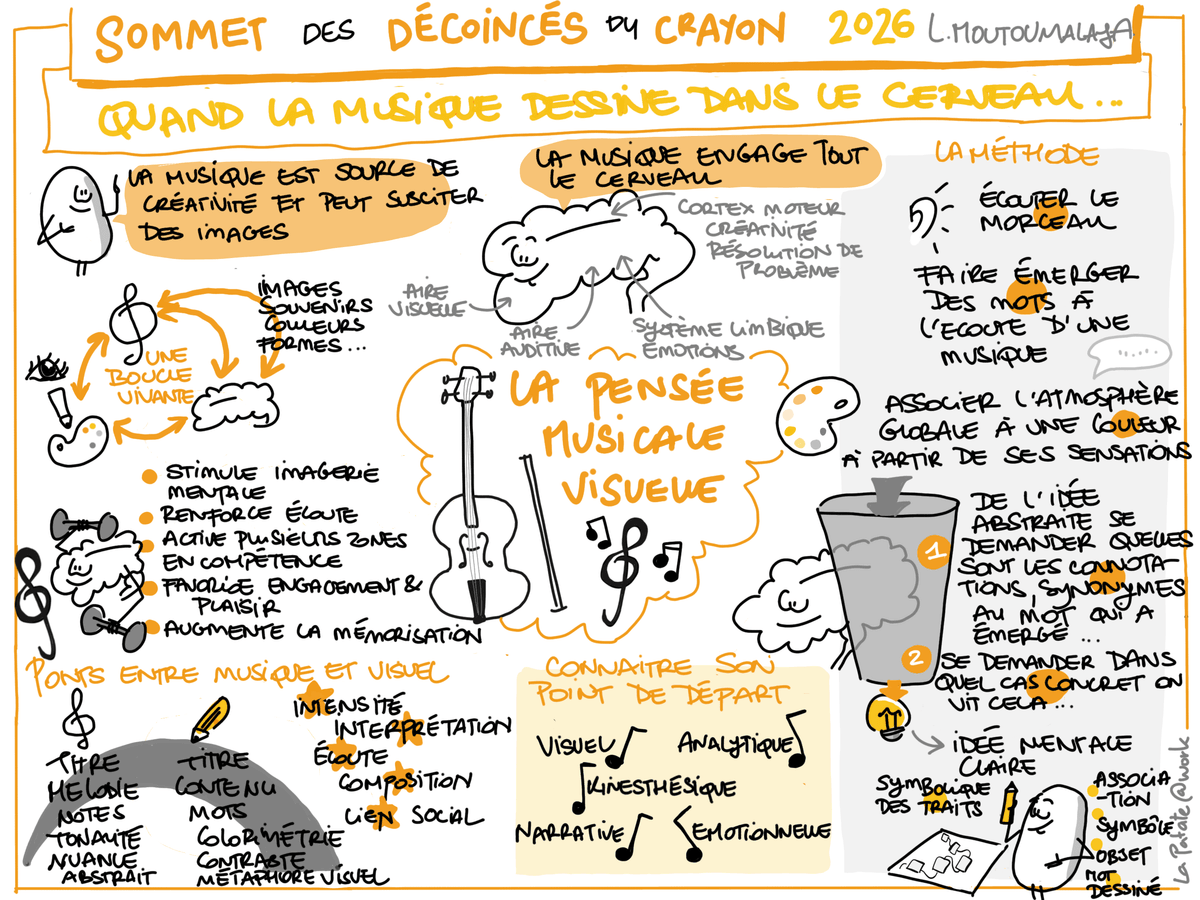 SOMMET DES DÉCOINCÉS DU CRAYON 2026 L.MOUTOUMALAYA
QUAND LA MUSIQUE DESSINE DANS LE CERVEAU...
LA MUSIQUE EST SOURCE DE
CRÉATIVITÉ ET PEUT SUSCITER
DES IMAGES
IMAGES
SOUVENIRS
COULEURS
FORMES...
UNE
BOUCLE
VIVANTE
STIMULE IMAGERIE
MENTALE
RENFORCE ÉCOUTE
ACTIVE PLUSIEURS ZONES
EN COMPÉTENCE
FAVORISE ENGAGEMENT &
PLAISIR
AUGMENTE LA MÉMORISATION
LA MUSIQUE ENGAGE TOUT
LE CERVEAU
CORTEX MOTEUR
CRÉATIVITÉ
RÉSOLUTION DE
PROBLÈME
AIRE
VISUELLE
AIRE
AUDITIVE
SYSTÈME LIMBIQUE
ÉMOTIONS
LA PENSÉE
MUSICALE
VISUELLE
PONTS ENTRE MUSIQUE ET VISUEL
TITRE
MÉLODIE
NOTES
TONALITÉ
NUANCE
ABSTRAIT
TITRE
CONTENU
MOTS
COLORIMÉTRIE
CONTRASTE
MÉTAPHORE VISUEL
INTENSITÉ
INTERPRÉTATION
ÉCOUTE
COMPOSITION
LIEN SOCIAL
CONNAITRE SON
POINT DE DÉPART
VISUEL
ANALYTIQUE
KINESTHÉSIQUE
NARRATIVE
EMOTIONNELLE
LA MÉTHODE
ÉCOUTER LE
MORCEAU
FAIRE ÉMERGER
DES MOTS À
L'ECOUTE D'UNE
MUSIQUE
ASSOCIER L'ATMOSPHÈRE
GLOBALE À UNE COULEUR
À PARTIR DE SES SENSATIONS
1
DE L'IDÉE
ABSTRAITE SE
DEMANDER QUELLES
SONT LES CONNOTA-
TIONS, SYNONYMES
AU MOT QUI A
ÉMERGÉ...
2
SE DEMANDER DANS
QUEL CAS CONCRET ON
VIT CELA...
IDÉE MENTALE
CLAIRE
SYMBOLIQUE
DES TRAITS
ASSOCIA
-TION
SYMBÔLE
OBJET
MOT
DESSINÉ
La Patate @work